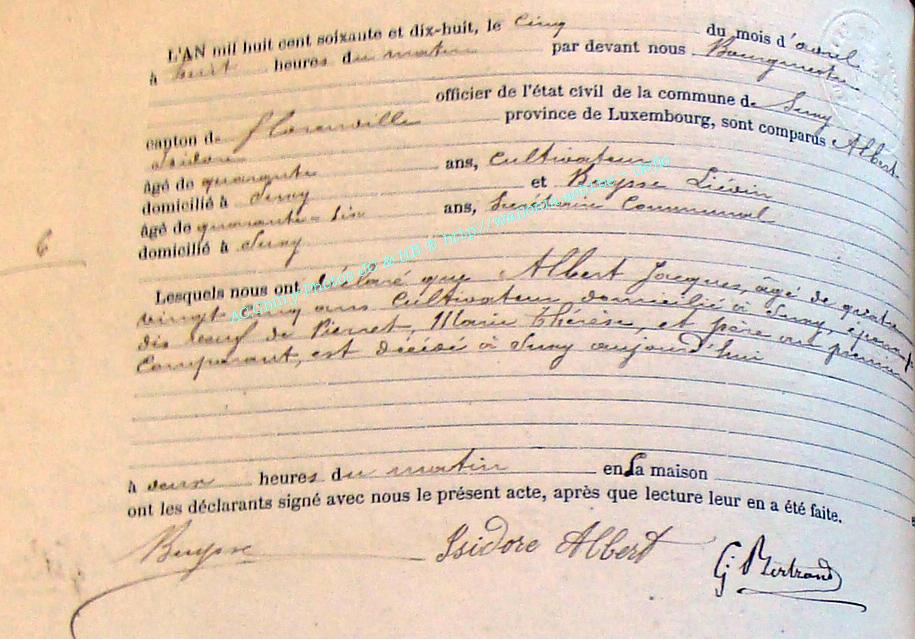 L'AN mil huit cent soixante et dix-huit, le cinq du mois d'avril
à huit heures du matin par devant nous Bourgmestre
officier de l'état civil de la commune de Suny
canton de Florenville province de Luxembourg, sont comparus Albert
Isidore
âgé de quarante ans, cultivateur
domicilié à Suny et Buysse Liévin
âgé de quarante-six ans, Secrétaire Communal
domicilié à Suny
6
Lesquels nous ont déclaré que Albert Jacques, âgé de quatre
vingt cinq ans cultivateur domicilié à Suny, époux
dis veuf de Pierret, Marie Thérèse, et père au premier
comparant, est décédé à Suny aujourd'hui
à deux heures du matin en sa maison
ont les déclarants signé avec nous le présent acte, après que lecture leur en a été faite.
Buysse Isidore Albert G Bertrand